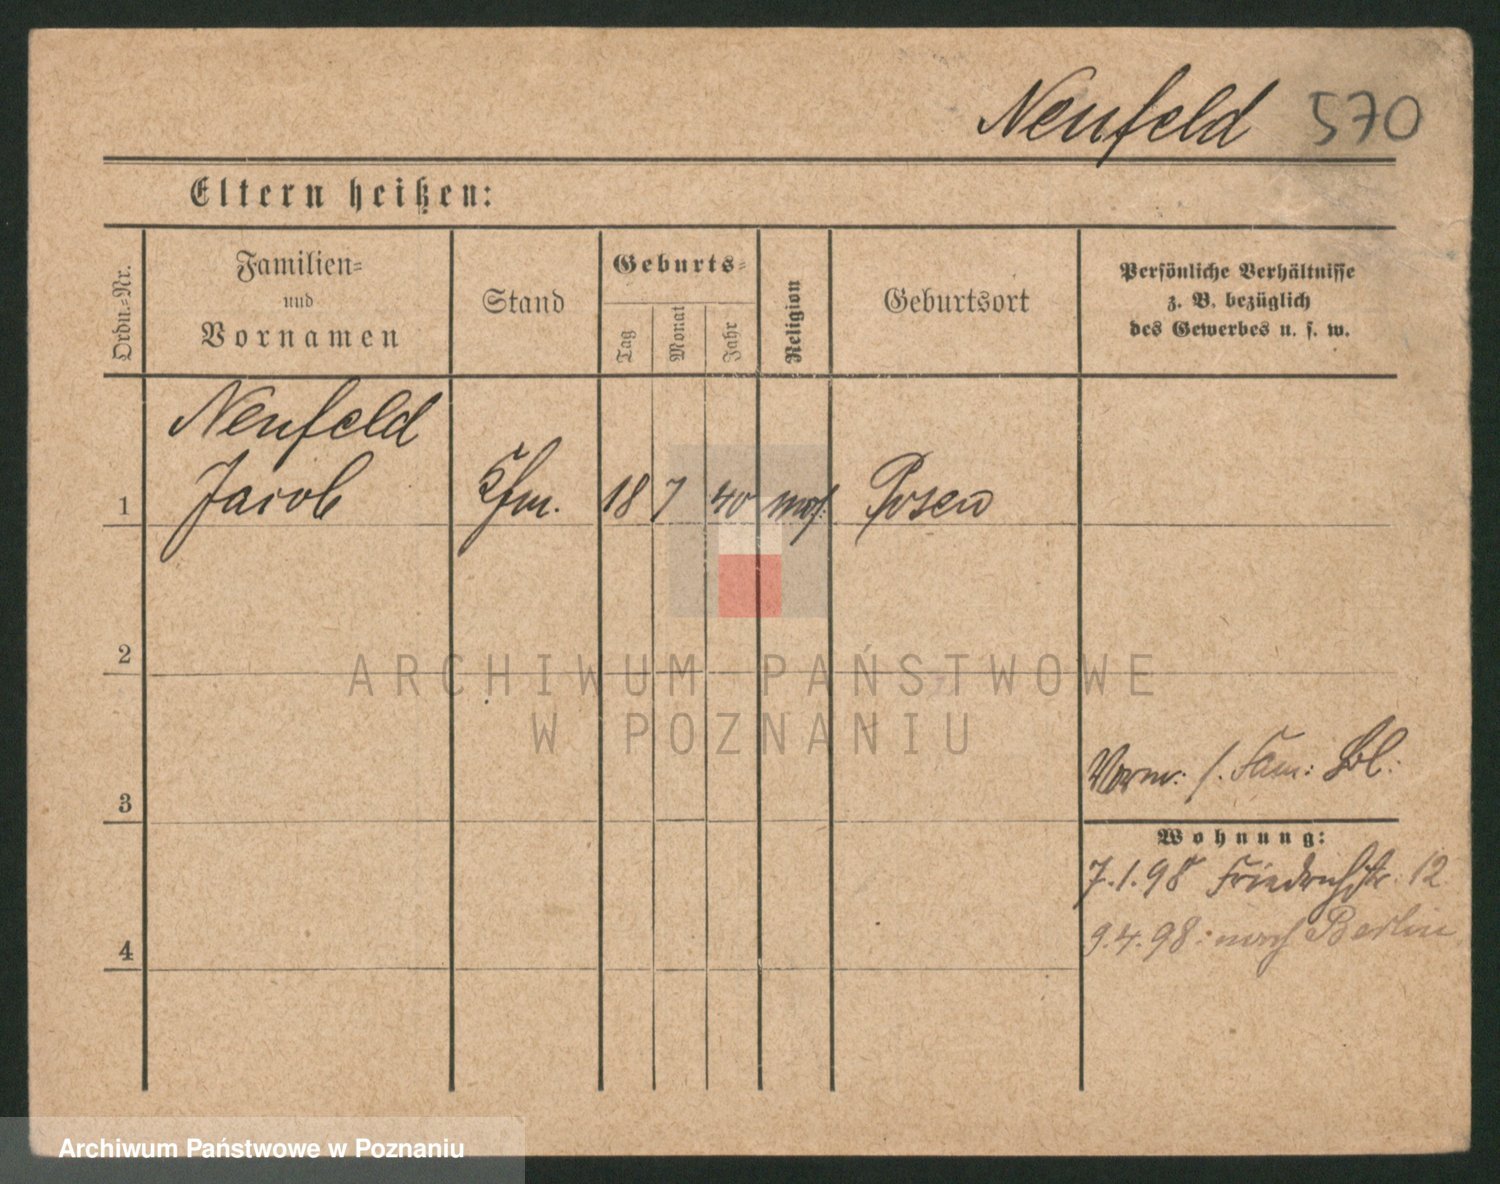 Neufeld 570
Eltern heißen:
Ordn.-Nr.
Familien-
und
Vornamen
Stand
Geburts-
Tag
Monat
Jahr
Religion
Geburtsort
Persönliche Verhältnisse
z. B. bezüglich
des Gewerbes u. s. w.
Neufeld
1 Jacob Kfm. 18 7 40 mos. Posen
2
ARCHIWUM PAŃSTWOWE
W POZNANIU
Verm: f. Fam: Bl:
3
Wohnung:
7.1.98 Friedrichstr. 12
9.4.98: nach Berlin
4
Archiwum Państwowe w Poznaniu